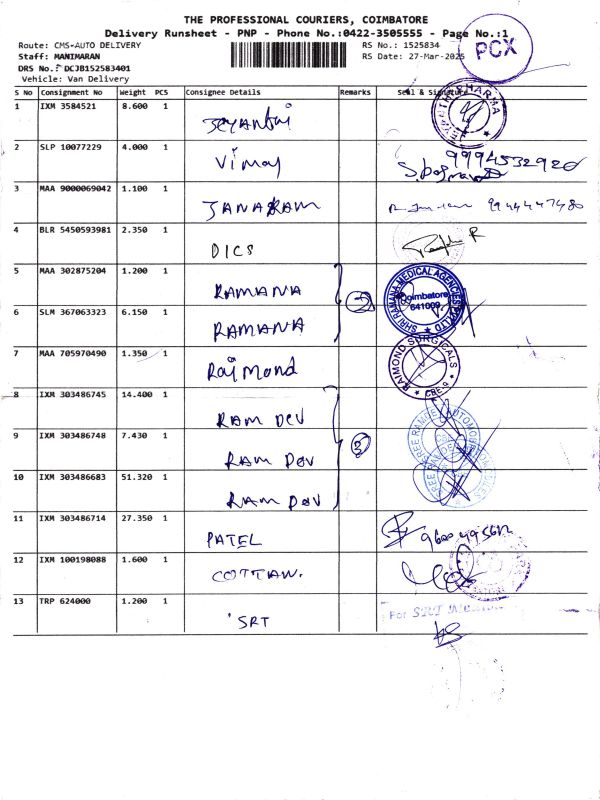 THE PROFESSIONAL COURIERS, COIMBATORE
Delivery Runsheet - PNP - Phone No.:0422-3505555 - Page No.:1
Route: CMS-AUTO DELIVERY RS No.: 1525834
Staff: MANIMARAN RS Date: 27-Mar-2025
DRS No.: DCJB152583401
Vehicle: Van Delivery
PCX
S No Consignment No Weight PCS Consignee Details Remarks Seal & Signature
1 IXM 3584521 8.600 1
2 SLP 10077229 4.000 1 Vimal 9994532920
3 MAA 9000069042 1.100 1 JANARAM 9944447480
4 BLR 5450593981 2.350 1 DICS
5 MAA 302875204 1.200 1 RAMANA 2 SHRI RAMANA MEDICAL AGENCIES PVT LTD Coimbatore 641009
6 SLM 367063323 6.150 1 RAMANA
7 MAA 705970490 1.350 1 Raimond RAIMOND SURGICALS CBE-9
8 IXM 303486745 14.400 1 RAM DEV
9 IXM 303486748 7.430 1 RAM DEV 3
10 IXM 303486683 51.320 1 RAM DEV
11 IXM 303486714 27.350 1 PATEL
12 IXM 100198088 1.600 1 COTTAN.
13 TRP 624000 1.200 1 SRT For